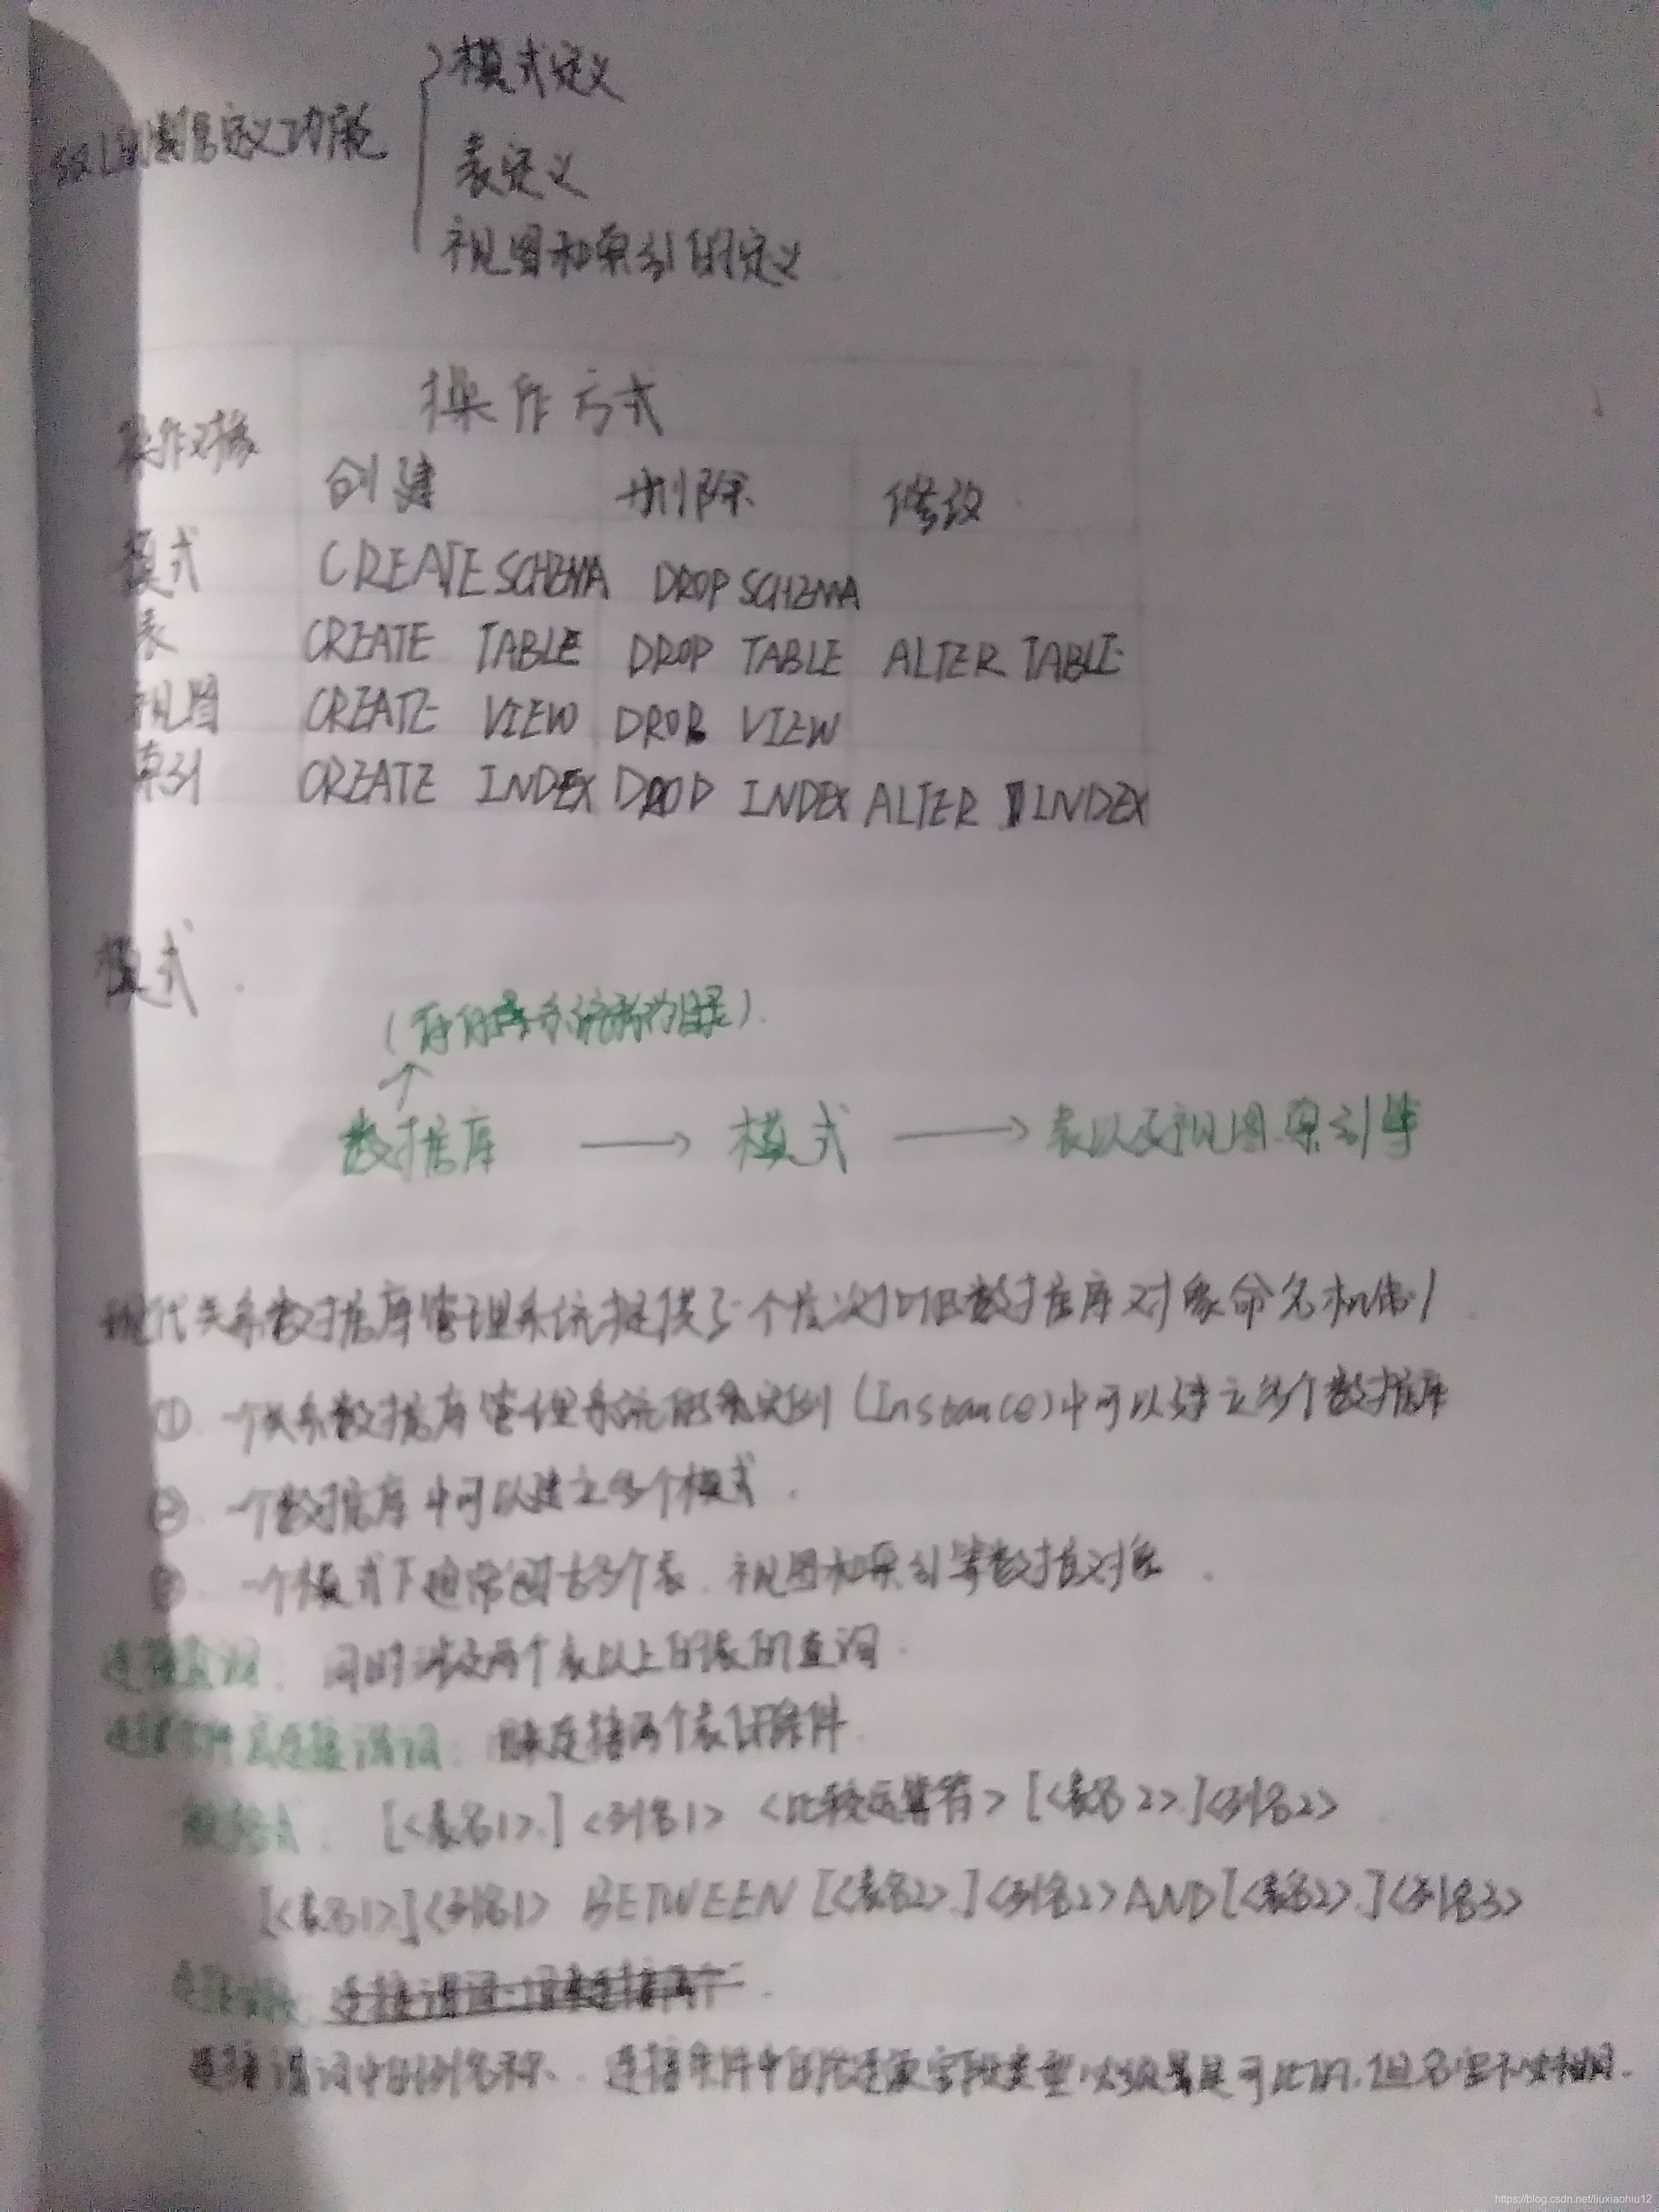 模式定义
SQL数据定义功能
表定义
视图和索引的定义
操作方式
操作对象
创建 删除 修改
模式 CREATE SCHEMA DROP SCHEMA
表 CREATE TABLE DROP TABLE ALTER TABLE
视图 CREATE VIEW DROP VIEW
索引 CREATE INDEX DROP INDEX ALTER INDEX
模式
(有的 系统称为目录)
数据库 → 模式 → 表以及视图、索引等
现代关系数据库管理系统提供了一个层次 数据库对象命名机制
① 一个关系数据库管理系统的实例(Instance)中可以建立多个数据库
② 一个数据库中可以建立多个模式
③ 一个模式下通常包括多个表、视图和索引等数据对象
连接查询: 同时涉及两个表以上的表的查询
连接条件或连接谓词: 用来连接两个表的条件
一般格式: [<表名1>.]<列名1> <比较运算符> [<表名2>.]<列名2>
[<表名1>.]<列名1> BETWEEN [<表名2>.]<列名2> AND [<表名2>.]<列名3>
连接字段:
连接谓词中的列名称. 连接条件中的各连接字段类型必须是可比的,但名字不必相同.
https://blog.csdn.net/liuxiaohiu12